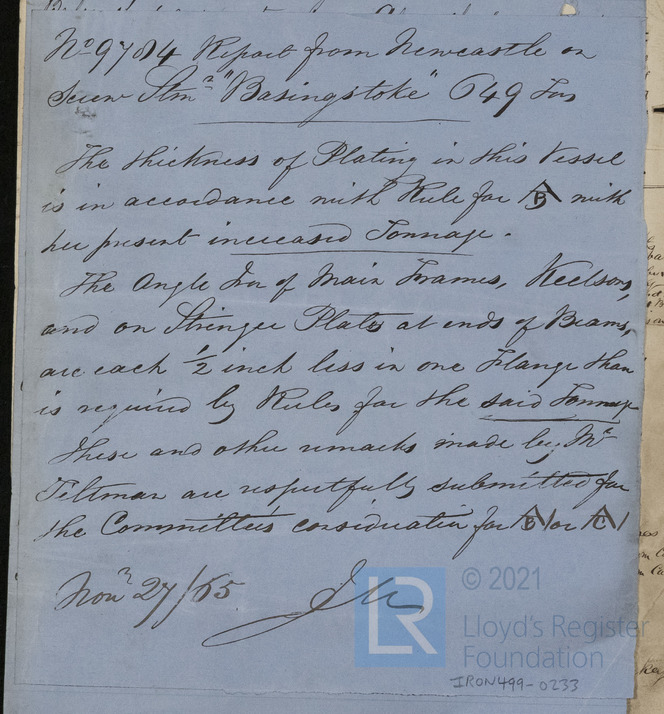 No 9784 Report from Newcastle on
Screw Stmr "Basingstoke" 649 Tons
The thickness of Plating in this Vessel
is in accordance with Rule for B with
her present increased Tonnage.
The Angle Irn of Main Frames, Keelsons,
and on Stringer Plates at ends of Beams,
are each 1/2 inch less in one Flange than
is required by Rules for the said Tonnage
These and other remarks made by Mr
Tiltman are respectfully submitted for
the Committee's consideration for B 1 or C 1
Novr 27/65
LR
© 2021
Lloyd's Register
Foundation
IRON499-0233